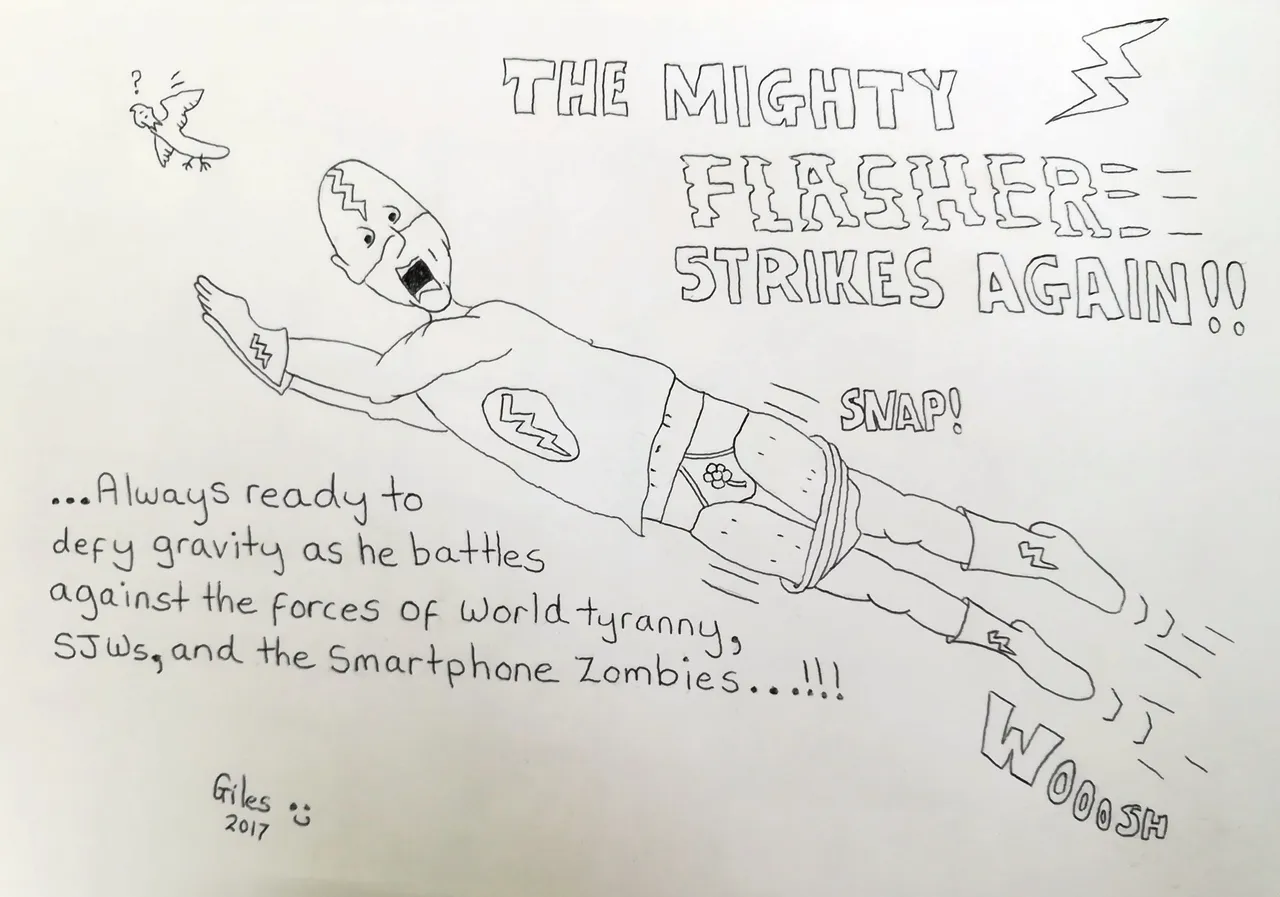 ?
THE MIGHTY
FLASHER
STRIKES AGAIN!!
SNAP!
...Always ready to
defy gravity as he battles
against the forces of world tyranny,
SJWs, and the Smartphone Zombies...!!!
WOOOSH
Giles :)
2017